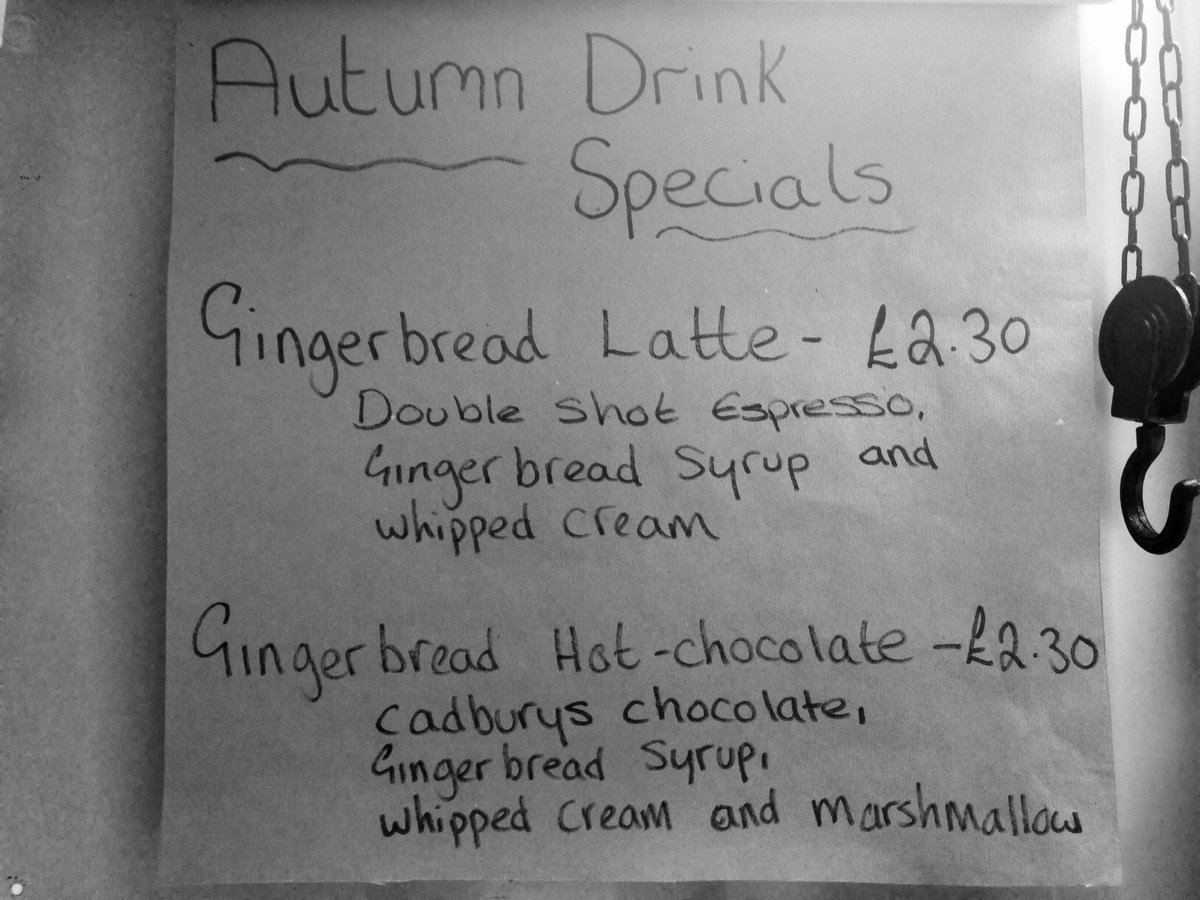 Autumn Drink
Specials
Gingerbread Latte - £2.30
Double shot Espresso,
Gingerbread Syrup and
whipped cream
Gingerbread Hot-chocolate - £2.30
Cadburys chocolate,
Gingerbread Syrup,
whipped cream and marshmallow